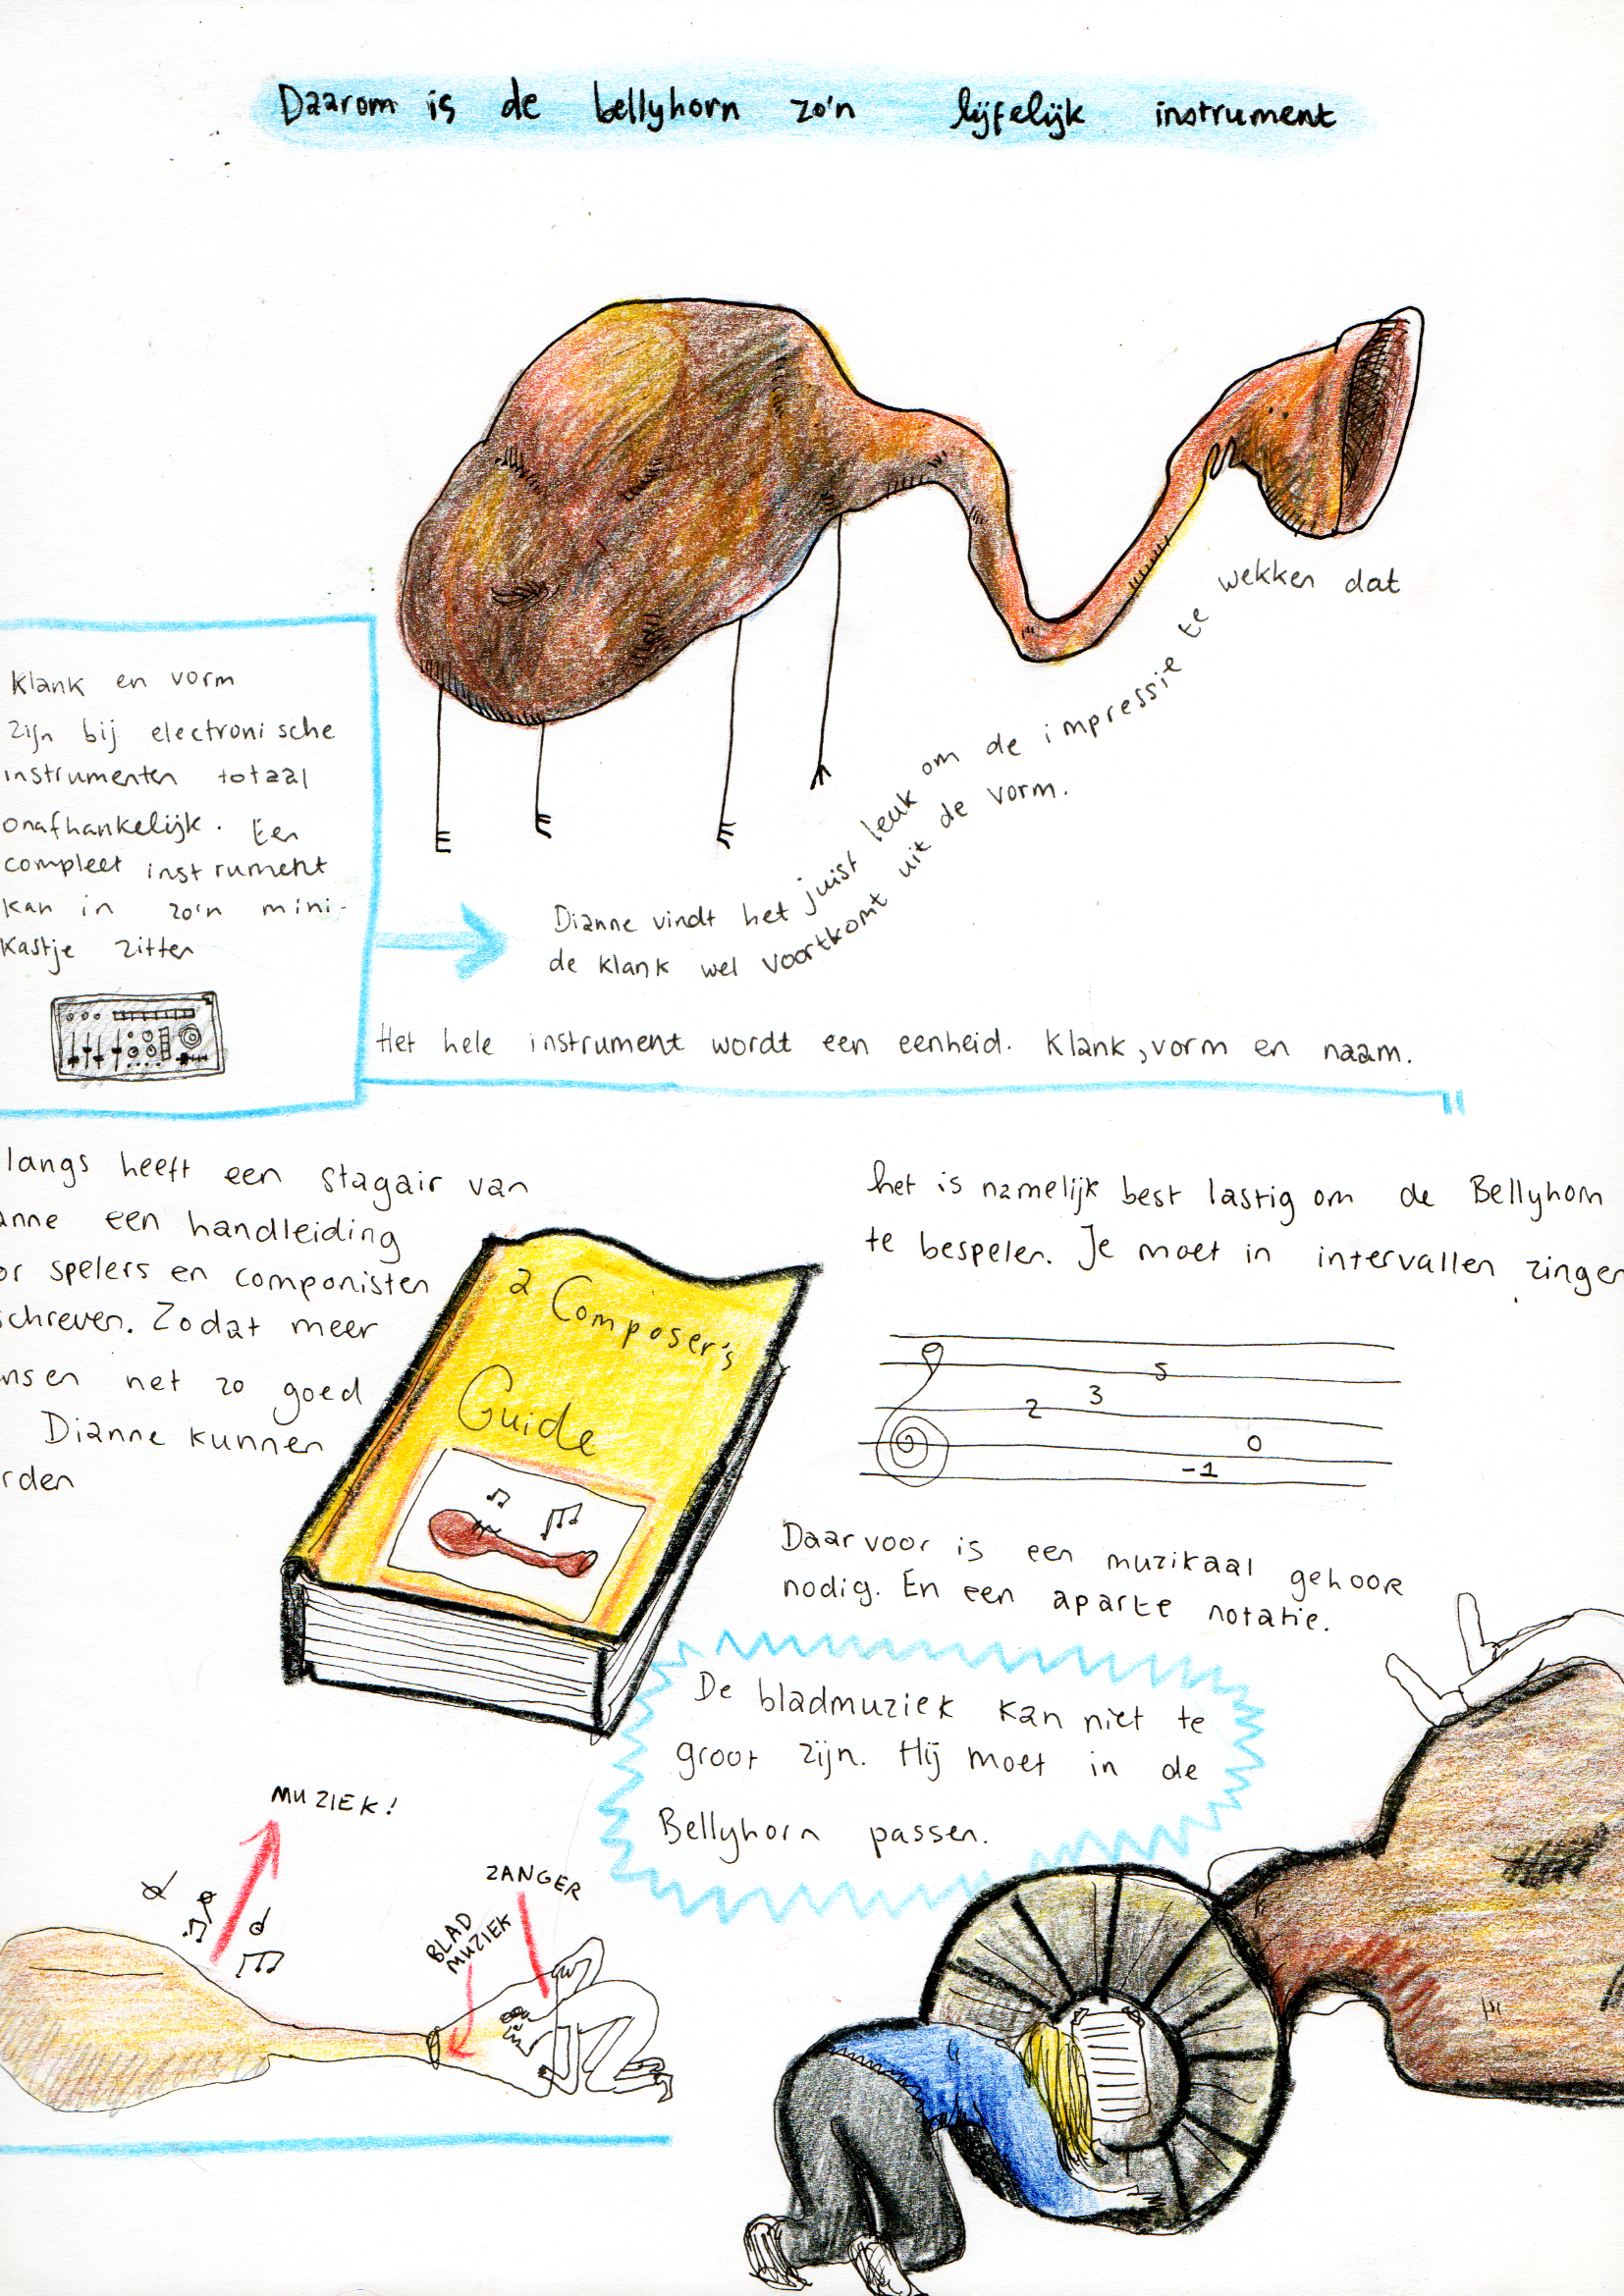 Daarom is de bellyhorn zo'n lijfelijk instrument
Klank en vorm
zijn bij electronische
instrumenten totaal
onafhankelijk. Een
compleet instrument
kan in zo'n mini-
kastje zitten
Dianne vindt het juist leuk om de impressie te wekken dat
de klank wel voortkomt uit de vorm.
Het hele instrument wordt een eenheid. Klank, vorm en naam.
langs heeft een stagair van
anne een handleiding
or spelers en componisten
schreven. Zodat meer
nsen net zo goed
Dianne kunnen
rden
a Composer's
Guide
het is namelijk best lastig om de Bellyhorn
te bespelen. Je moet in intervallen zingen
5
3
2
0
-1
Daarvoor is een muzikaal gehoor
nodig. En een aparte notatie.
De bladmuziek kan niet te
groot zijn. Hij moet in de
Bellyhorn passen.
MUZIEK!
ZANGER
BLAD
MUZIEK